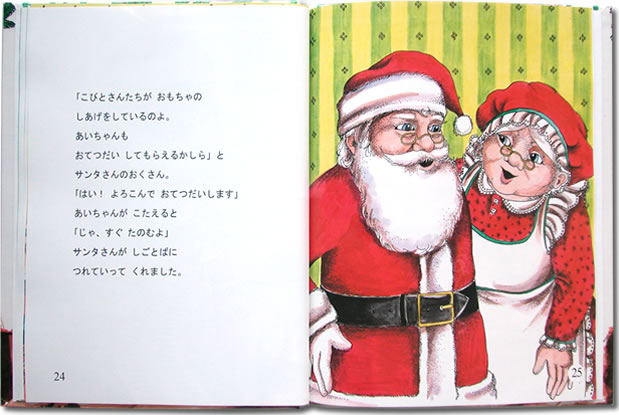 「こびとさんたちが おもちゃの
しあげをしているのよ。
あいちゃんも
おてつだい してもらえるかしら」と
サンタさんのおくさん。
「はい！ よろこんで おてつだいします」
あいちゃんが こたえると
「じゃ、すぐ たのむよ」
サンタさんが しごとばに
つれていって くれました。
24
25